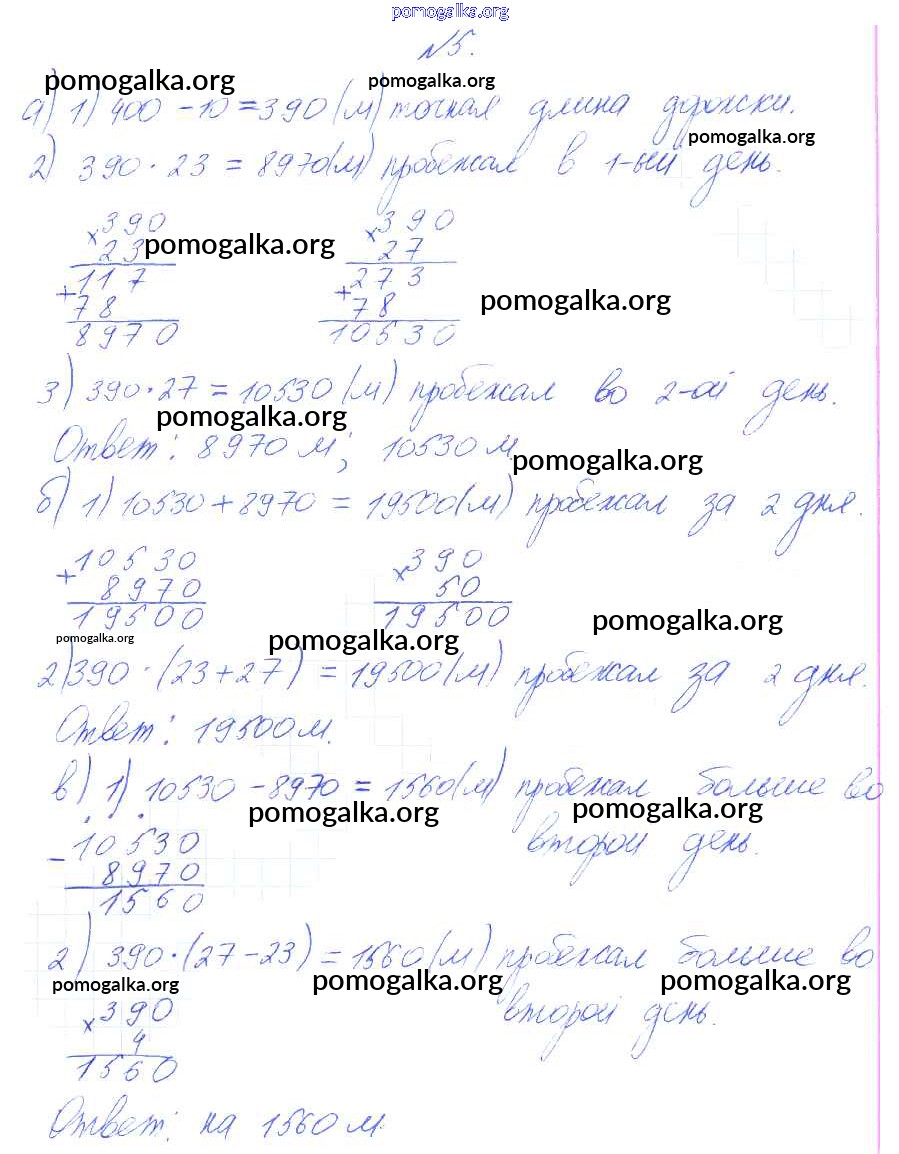 pomogalka.org
№5.
pomogalka.org pomogalka.org
а) 1) 400 - 10 = 390 (м) точная длина дорожки.
pomogalka.org
2) 390 · 23 = 8970(м) пробежал в 1-ый день.
× 390 × 390
23 27
pomogalka.org
117 273
+ 78 + 78
pomogalka.org
8970 10530
3) 390 · 27 = 10530 (м) пробежал во 2-ой день.
pomogalka.org
Ответ: 8970 м; 10530 м.
pomogalka.org
б) 1) 10530 + 8970 = 19500(м) пробежал за 2 дня.
+ 10530 × 390
8970 50
19500 19500
pomogalka.org
pomogalka.org pomogalka.org
2) 390 · (23 + 27) = 19500(м) пробежал за 2 дня.
Ответ: 19500м.
в) 1) 10530 - 8970 = 1560(м) пробежал больше во
pomogalka.org pomogalka.org
второй день.
- 10530
8970
1560
2) 390 · (27 - 23) = 1560(м) пробежал больше во
pomogalka.org pomogalka.org pomogalka.org
второй день.
× 390
4
1560
Ответ: на 1560 м